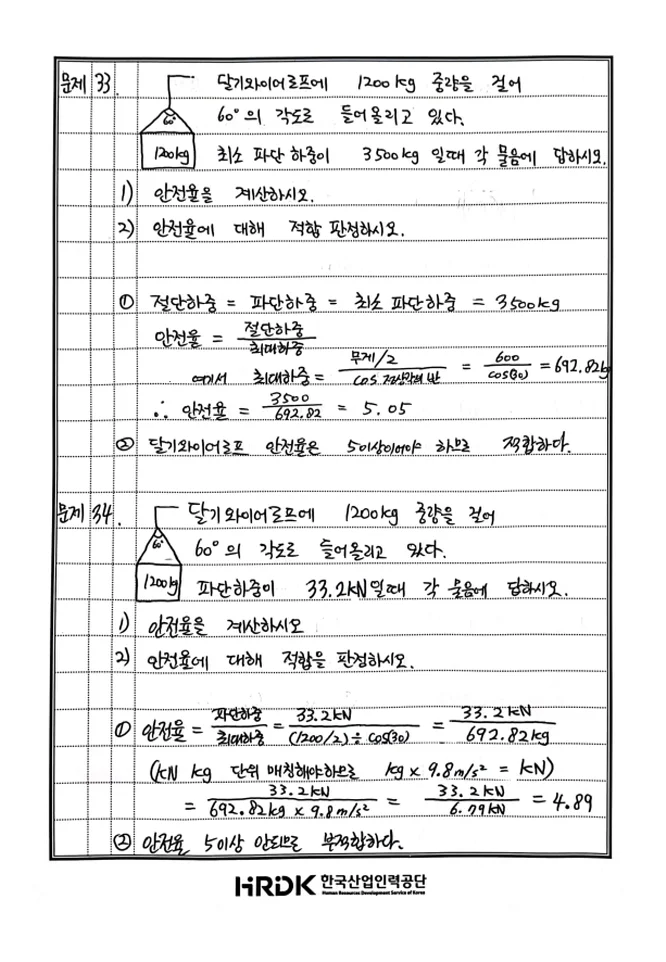 문제 33. 달기와이어로프에 1200kg 중량을 걸어
60° 60°의 각도로 들어올리고 있다.
1200kg 최소 파단하중이 3500kg 일때 각 물음에 답하시오.
1) 안전율을 계산하시오.
2) 안전율에 대해 적합 판정하시오.
① 절단하중 = 파단하중 = 최소 파단하중 = 3500kg
안전율 = 절단하중/최대하중
여기서 최대하중 = 무게/2 / cos 각의 반 = 600/cos(30) = 692.82kg
∴ 안전율 = 3500/692.82 = 5.05
② 달기와이어로프 안전율은 5이상이어야 하므로 적합하다.
문제 34. 달기와이어로프에 1200kg 중량을 걸어
60° 60°의 각도로 들어올리고 있다.
1200kg 파단하중이 33.2kN일때 각 물음에 답하시오.
1) 안전율을 계산하시오
2) 안전율에 대해 적합을 판정하시오.
① 안전율 = 파단하중/최대하중 = 33.2kN/(1200/2)÷cos(30) = 33.2kN/692.82kg
(kN kg 단위 매칭해야하므로 kg × 9.8m/s² = kN)
= 33.2kN/692.82kg × 9.8m/s² = 33.2kN/6.79kN = 4.89
② 안전율 5이상 안되므로 부적합하다.
HRDK 한국산업인력공단
Human Resources Development Service of Korea